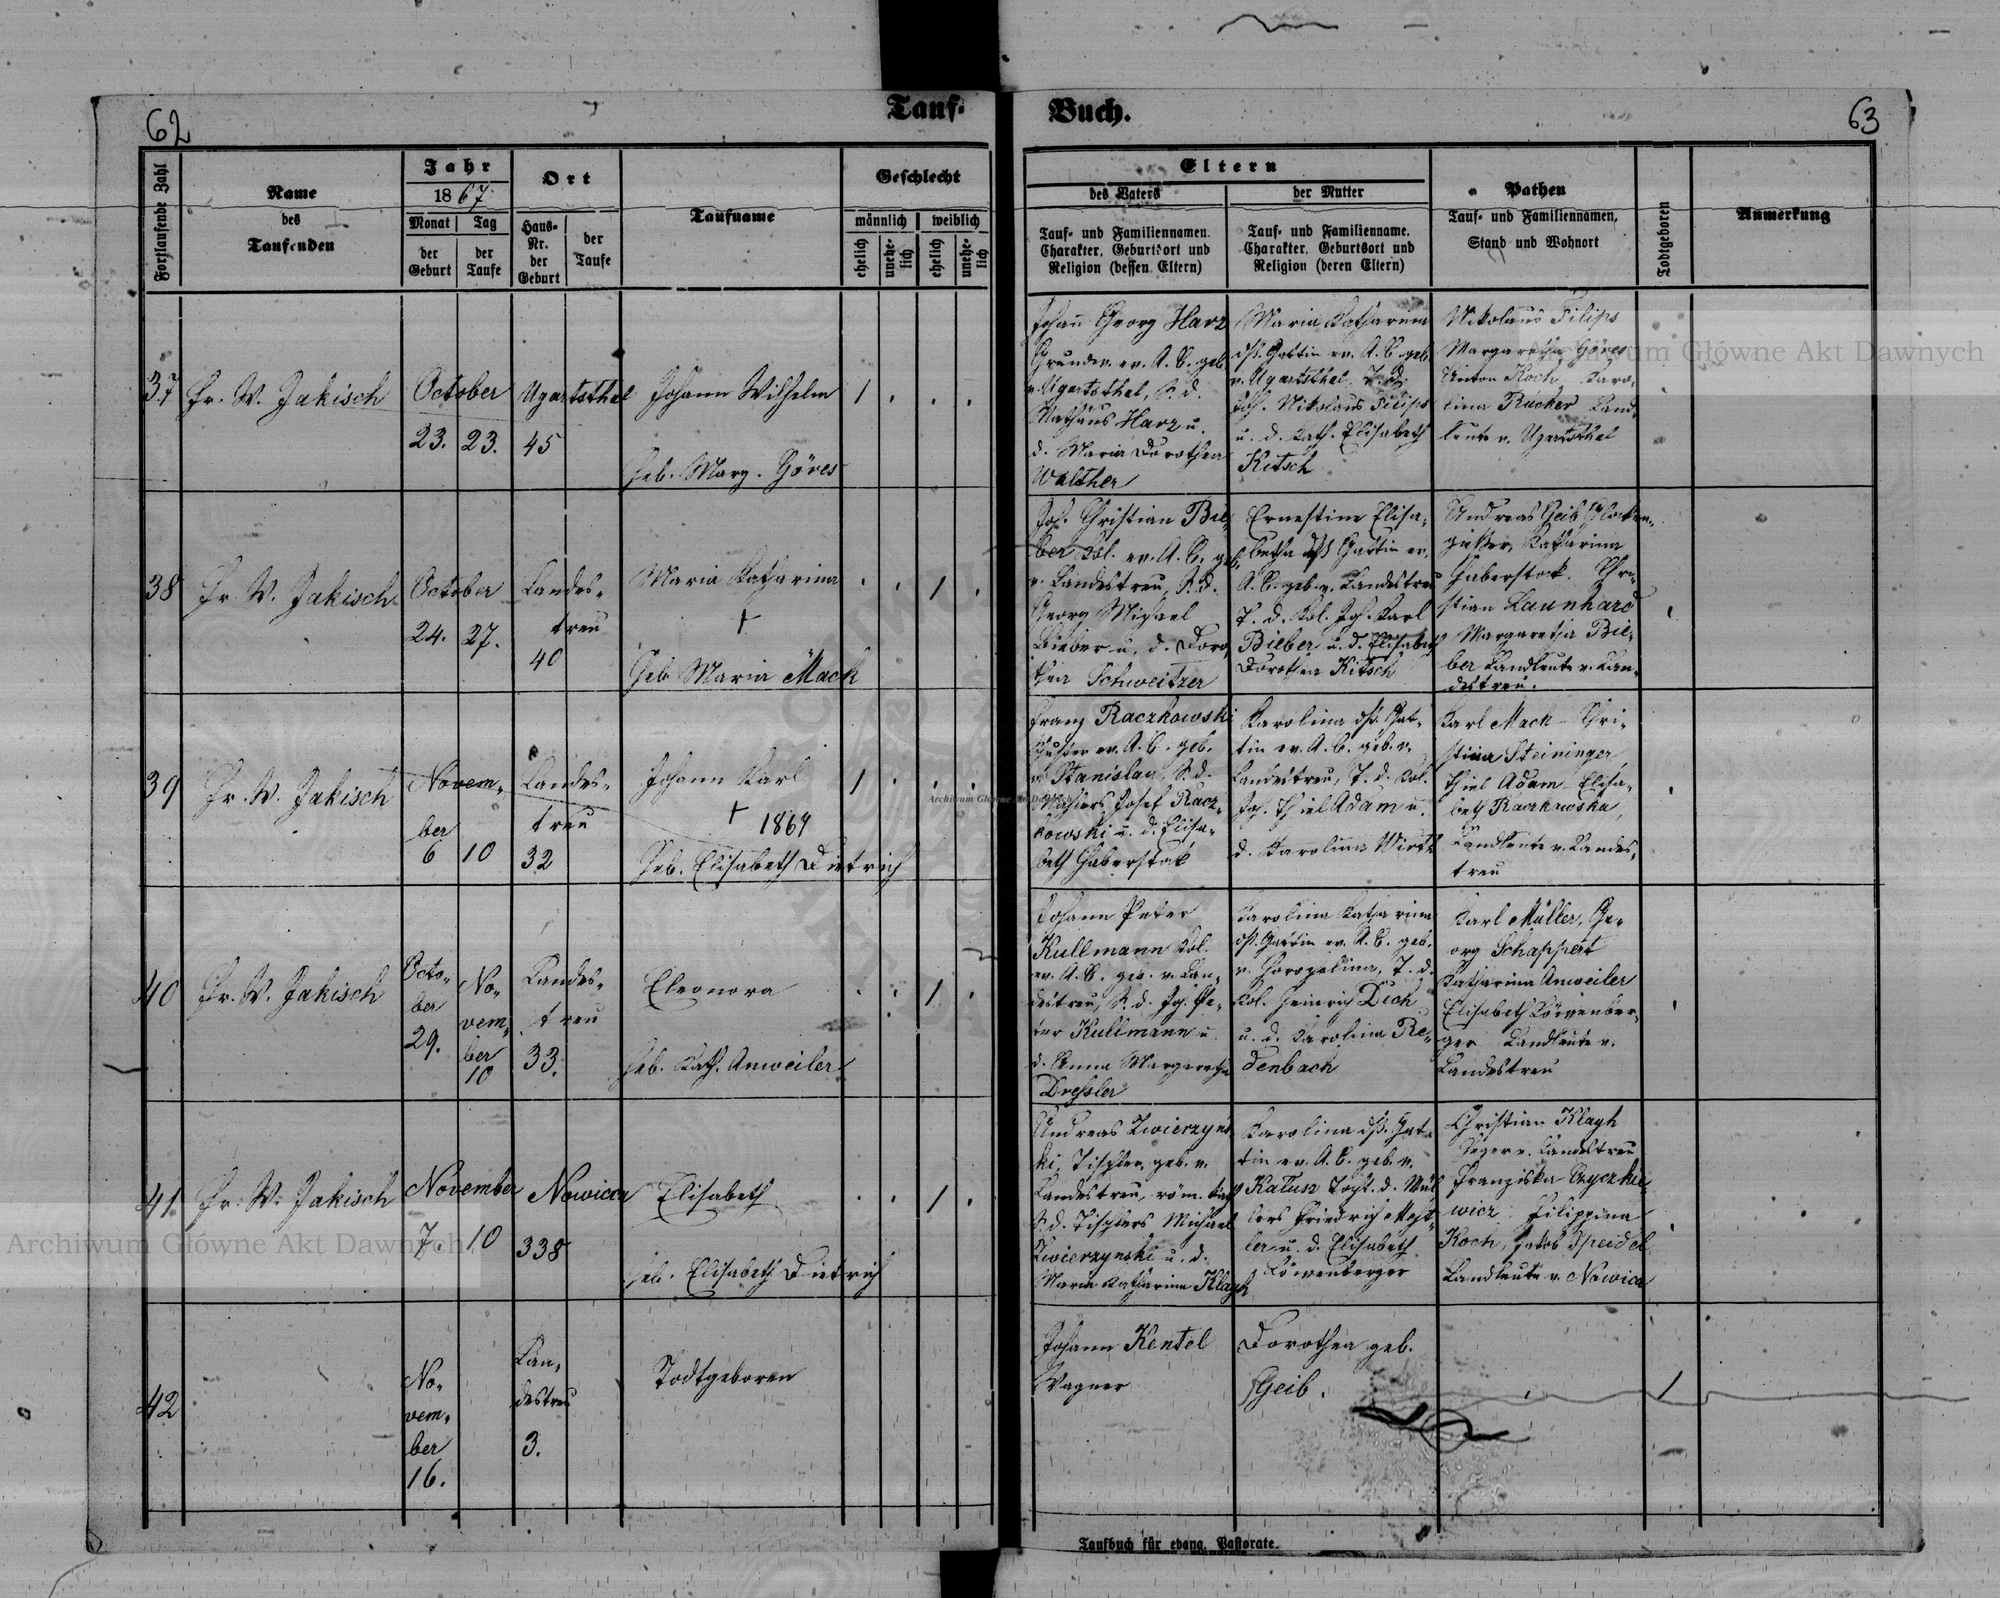 62
Tauf-
Buch.
63
Fortlaufende Zahl
Name
des
Taufenden
Jahr
1867
Monat
Tag
der
Geburt
der
Taufe
Ort
Haus-
Nr.
der
Geburt
der
Taufe
Taufname
Geschlecht
männlich
weiblich
ehelich
unehe-
lich
ehelich
unehe-
lich
Eltern
des Vaters
der Mutter
Tauf- und Familiennamen.
Charakter, Geburtsort und
Religion (dessen Eltern)
Tauf- und Familienname.
Charakter, Geburtsort und
Religion (deren Eltern)
Pathen
Tauf- und Familiennamen,
Stand und Wohnort
Todtgeboren
Anmerkung
37
Fr. W. Jakisch
October
23. 23.
Ugartsthal
45
Johann Wilhelm
Heb. Marg. Göres
1
Johann Georg Harz
Grundw. ev. A. C. geb.
v. Ugartsthal, S. d.
Mathäus Harz u.
d. Maria Dorothea
Walther
Maria Katharina
dss. Gattin ev. A. C. geb.
v. Ugartsthal, T. d.
Joh. Nikolaus Filips
u. d. Kath. Elisabeth
Kitsch
Nikolaus Filips
Margaretha Göres
Anton Koch, Karo-
lina Rucker Land-
leute v. Ugartsthal
38
Fr. W. Jakisch
October
24. 27.
Landes-
treu
40
Maria Katharina
+
Heb. Maria Mack
1
Joh. Christian Bie-
ber Kol. ev. A. C. geb.
v. Landestreu, S. d.
Georg Michael
Bieber u. d. Doro-
thea Schweitzer
Ernestine Elisa-
betha dss Gattin ev.
A. C. geb. v. Landestreu
T. d. Kol. Joh. Karl
Bieber u. d. Elisabeth
Dorothea Kitsch
Andreas Geib Glocken-
gießer, Katharina
Haberstock. Chri-
stian Launhard
Margaretha Bie-
ber Landleute v. Lan-
destreu.
39
Fr. W. Jakisch
Novem-
ber
6 10
Landes-
treu
32
Johann Karl
+ 1869
Heb. Elisabeth Dietrich
1
Franz Raczkowski
Schuster ev. A. C. geb.
v. Stanislau, S. d.
Josef Racz-
kowski u. d. Elisa-
beth Haberstok
Karolina dss. Gat-
tin ev. A. C. geb. v.
Landestreu, T. d. Kol.
Joh. Thiel Adam u.
d. Karolina Wirth
Karl Mack Chri-
stina Steininger,
Thiel Adam Elisa-
beth Raczkowska,
Landleute v. Landes-
treu
40
Fr. W. Jakisch
Octo-
ber
29.
No-
vem-
ber
10
Landes-
treu
33.
Eleonora
Heb. Kath. Anweiler
1
Johann Peter
Kullmann Kol.
ev. A. C. geb. v. Lan-
destreu, S. d. Joh. Pe-
ter Kullmann u.
d. Anna Margaretha
Dressler
Karolina Katharina
dss. Gattin ev. A. C. geb.
v. T. d.
Kol. Heinrich Dich
u. d. Karolina Re-
denbach
Karl Müller, Ge-
org Schappert
Katharina Anweiler
Elisabeth Löwenber-
ger Landleute v.
Landestreu
41.
Fr. W. Jakisch
November
7. 10
Nowica
338
Elisabeth
Heb. Elisabeth Dietrich
1
Andreas Zwierzyns-
ki, Tischler, geb. v.
Landestreu, röm. kath
S. d. Tischlers Michael
Zwierzynski u. d.
Maria Katharina Klagh
Karolina dss. Gat-
tin ev. A. C. geb. v.
Kalusz Tocht. d. Mül-
lers Friedrich
u. d. Elisabeth
Löwenberger
Christian Klagh
v. Landestreu
Franziska
Filippina
Koch, Jakob Speidel
Landleute v. Nowica
42
No-
vem-
ber
16.
Lan-
destreu
3.
Todtgeboren
Johann Kentel
Wagner
Dorothea geb.
Geib.
1
Taufbuch für evang. Pastorate.
Archiwum Główne Akt Dawnych
Archiwum Główne Akt Dawnych
Archiwum Główne Akt Dawnych